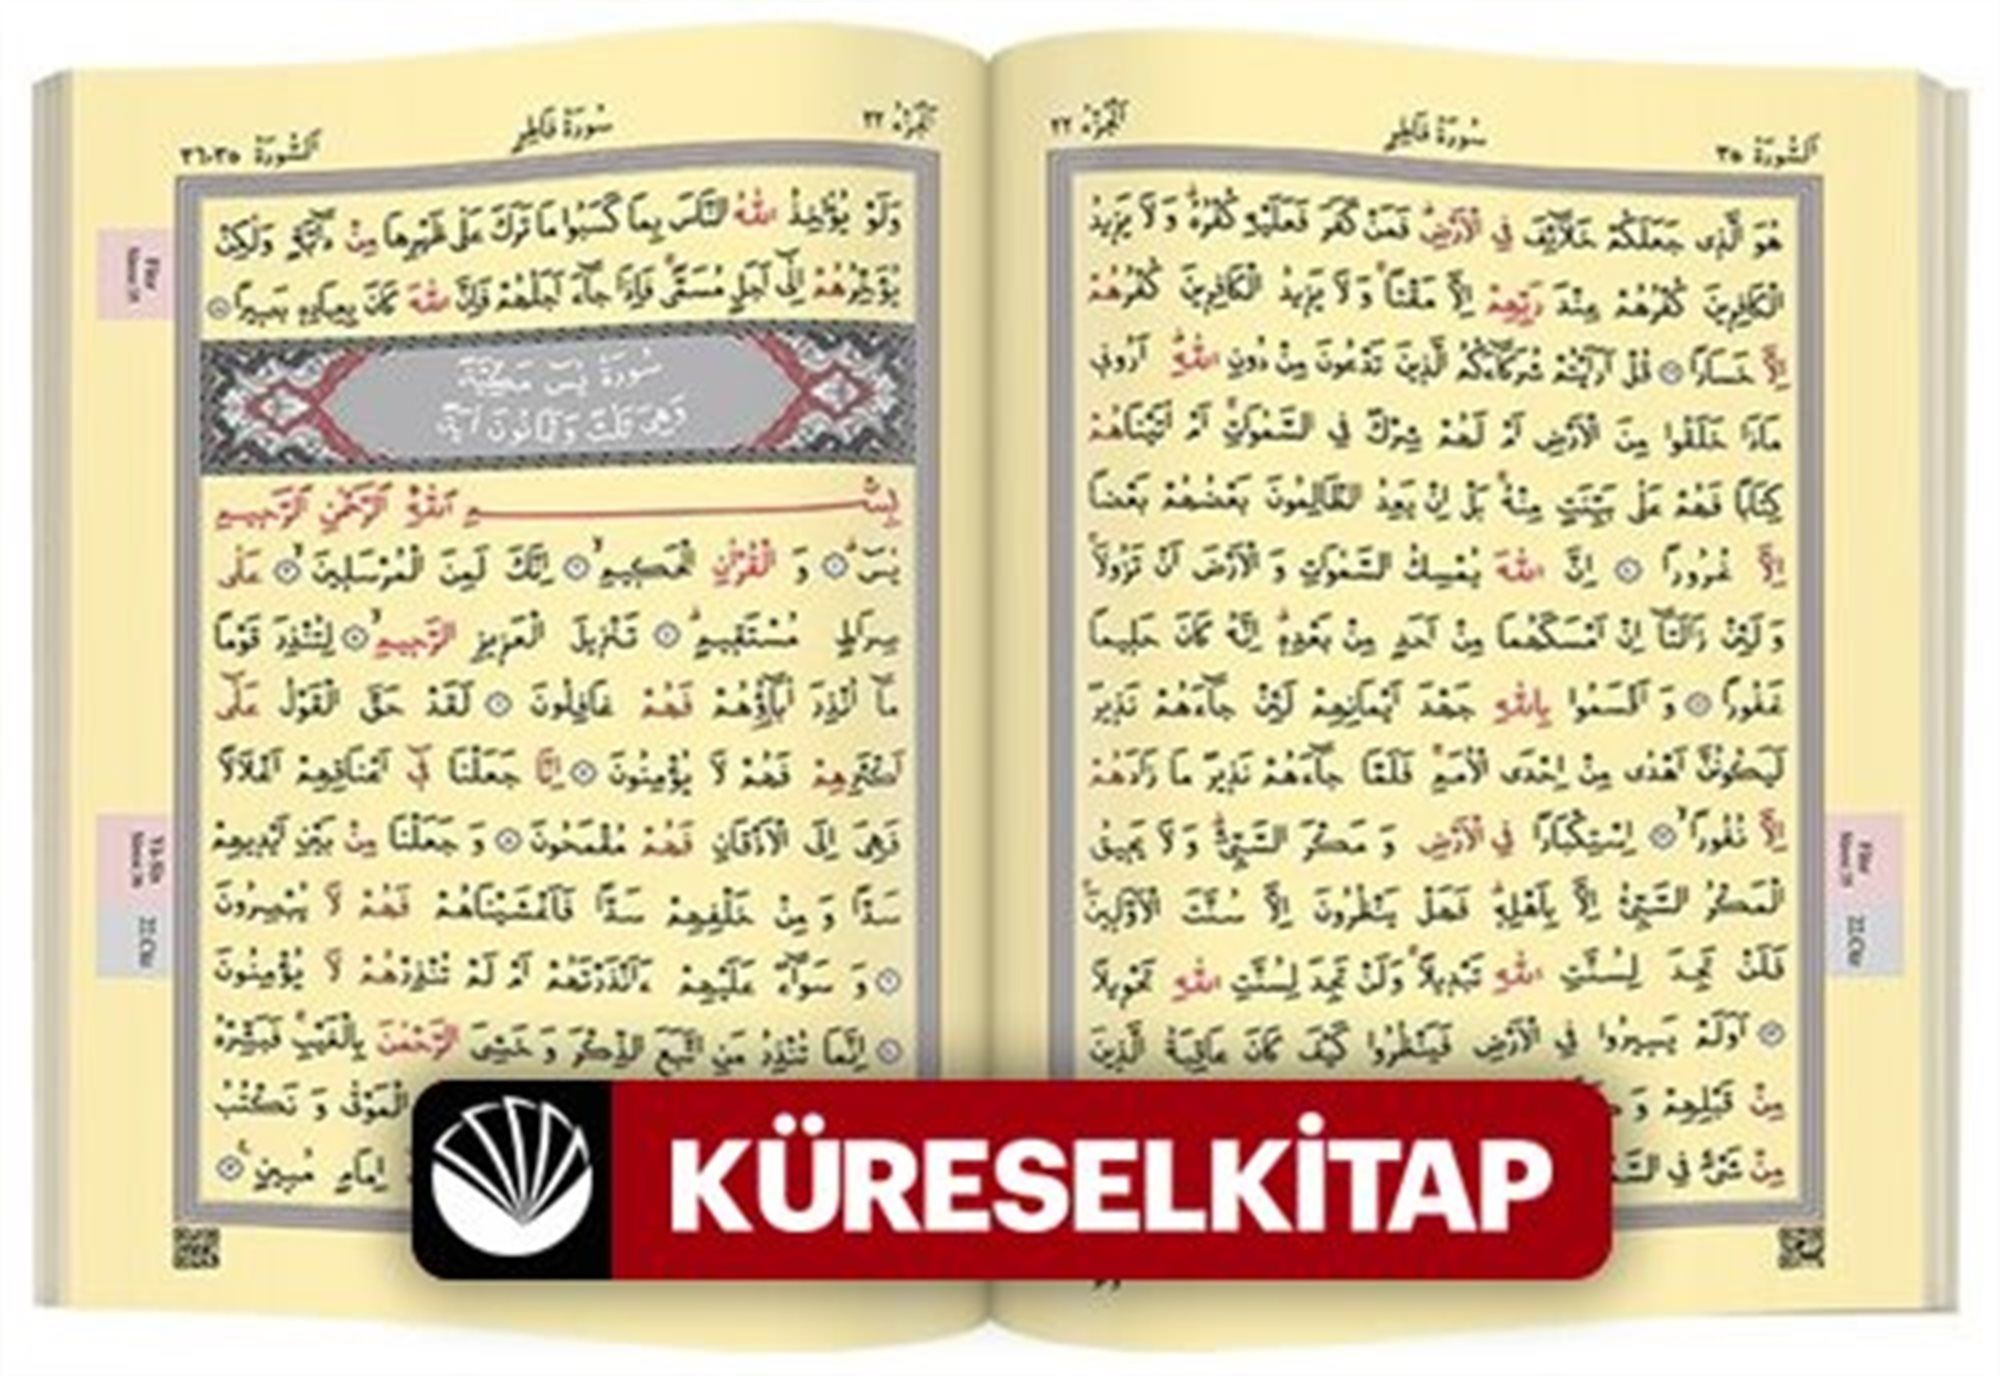 اَلسُّورَةُ ٣٥
سُورَةُ فَاطِرٍ
اَلْجُزْءُ ٢٢
هُوَ الَّذِى جَعَلَكُمْ خَلَٓائِفَ فِى الْاَرْضِ فَمَنْ كَفَرَ فَعَلَيْهِ كُفْرُهُ وَلَا يَزِيدُ
الْكَافِرِينَ كُفْرُهُمْ عِنْدَ رَبِّهِمْ اِلَّا مَقْتًا وَلَا يَزِيدُ الْكَافِرِينَ كُفْرُهُمْ
اِلَّا خَسَارًا ٣٩ قُلْ اَرَاَيْتُمْ شُرَكَٓاءَكُمُ الَّذِينَ تَدْعُونَ مِنْ دُونِ اللّٰهِ اَرُونِى
مَاذَا خَلَقُوا مِنَ الْاَرْضِ اَمْ لَهُمْ شِرْكٌ فِى السَّمٰوَاتِ اَمْ اٰتَيْنَاهُمْ
كِتَابًا فَهُمْ عَلٰى بَيِّنَتٍ مِنْهُ بَلْ اِنْ يَعِدُ الظَّالِمُونَ بَعْضُهُمْ بَعْضًا
اِلَّا غُرُورًا ٤٠ اِنَّ اللّٰهَ يُمْسِكُ السَّمٰوَاتِ وَ الْاَرْضَ اَنْ تَزُولَا
وَ لَئِنْ زَالَتَٓا اِنْ اَمْسَكَهُمَا مِنْ اَحَدٍ مِنْ بَعْدِهِ اِنَّهُ كَانَ حَلِيمًا
غَفُورًا ٤١ وَ اَقْسَمُوا بِاللّٰهِ جَهْدَ اَيْمَانِهِمْ لَئِنْ جَٓاءَهُمْ نَذِيرٌ
لَيَكُونُنَّ اَهْدٰى مِنْ اِحْدَى الْاُمَمِ فَلَمَّا جَٓاءَهُمْ نَذِيرٌ مَا زَادَهُمْ
اِلَّا نُفُورًا ٤٢ اِسْتِكْبَارًا فِى الْاَرْضِ وَ مَكْرَ السَّيِّئِ وَ لَا يَحِيقُ
الْمَكْرُ السَّيِّئُ اِلَّا بِاَهْلِهِ فَهَلْ يَنْظُرُونَ اِلَّا سُنَّتَ الْاَوَّلِينَ
فَلَنْ تَجِدَ لِسُنَّتِ اللّٰهِ تَبْدِيلًا وَلَنْ تَجِدَ لِسُنَّتِ اللّٰهِ تَحْوِيلًا
٤٣ اَوَلَمْ يَسِيرُوا فِى الْاَرْضِ فَيَنْظُرُوا كَيْفَ كَانَ عَاقِبَةُ الَّذِينَ
مِنْ قَبْلِهِمْ وَ
مِنْ شَىْءٍ فِى
Fâtır
22.Cüz
اَلسُّورَةُ ٣٦،٣٥
سُورَةُ فَاطِرٍ
اَلْجُزْءُ ٢٢
وَلَوْ يُؤَاخِذُ اللّٰهُ النَّاسَ بِمَا كَسَبُوا مَا تَرَكَ عَلٰى ظَهْرِهَا مِنْ دَٓابَّةٍ وَلٰكِنْ
يُؤَخِّرُهُمْ اِلٰٓى اَجَلٍ مُسَمًّى فَاِذَا جَٓاءَ اَجَلُهُمْ فَاِنَّ اللّٰهَ كَانَ بِعِبَادِهِ بَصِيرًا ٤٥
سُورَةُ يٰسٓ مَكِّيَّةٌ
وَهِىَ ثَلٰثٌ وَثَمَانُونَ اٰيَةً
بِسْمِ اللّٰهِ الرَّحْمٰنِ الرَّحِيمِ
يٰسٓ ١ وَ الْقُرْاٰنِ الْحَكِيمِ ٢ اِنَّكَ لَمِنَ الْمُرْسَلِينَ ٣ عَلٰى
صِرَاطٍ مُسْتَقِيمٍ ٤ تَنْزِيلَ الْعَزِيزِ الرَّحِيمِ ٥ لِتُنْذِرَ قَوْمًا
مَٓا اُنْذِرَ اٰبَٓاؤُهُمْ فَهُمْ غَافِلُونَ ٦ لَقَدْ حَقَّ الْقَوْلُ عَلٰٓى
اَكْثَرِهِمْ فَهُمْ لَا يُؤْمِنُونَ ٧ اِنَّا جَعَلْنَا فِٓى اَعْنَاقِهِمْ اَغْلَالًا
فَهِىَ اِلَى الْاَذْقَانِ فَهُمْ مُقْمَحُونَ ٨ وَ جَعَلْنَا مِنْ بَيْنِ اَيْدِيهِمْ
سَدًّا وَ مِنْ خَلْفِهِمْ سَدًّا فَاَغْشَيْنَاهُمْ فَهُمْ لَا يُبْصِرُونَ
٩ وَ سَوَٓاءٌ عَلَيْهِمْ ءَاَنْذَرْتَهُمْ اَمْ لَمْ تُنْذِرْهُمْ لَا يُؤْمِنُونَ
١٠ اِنَّمَا تُنْذِرُ مَنِ اتَّبَعَ الذِّكْرَ وَ خَشِىَ الرَّحْمٰنَ بِالْغَيْبِ فَبَشِّرْهُ
الْمَوْتٰى وَ نَكْتُبُ
اِمَامٍ مُبِينٍ ١٢
Fâtır
Yâ-Sîn
22.Cüz
KÜRESELKİTAP